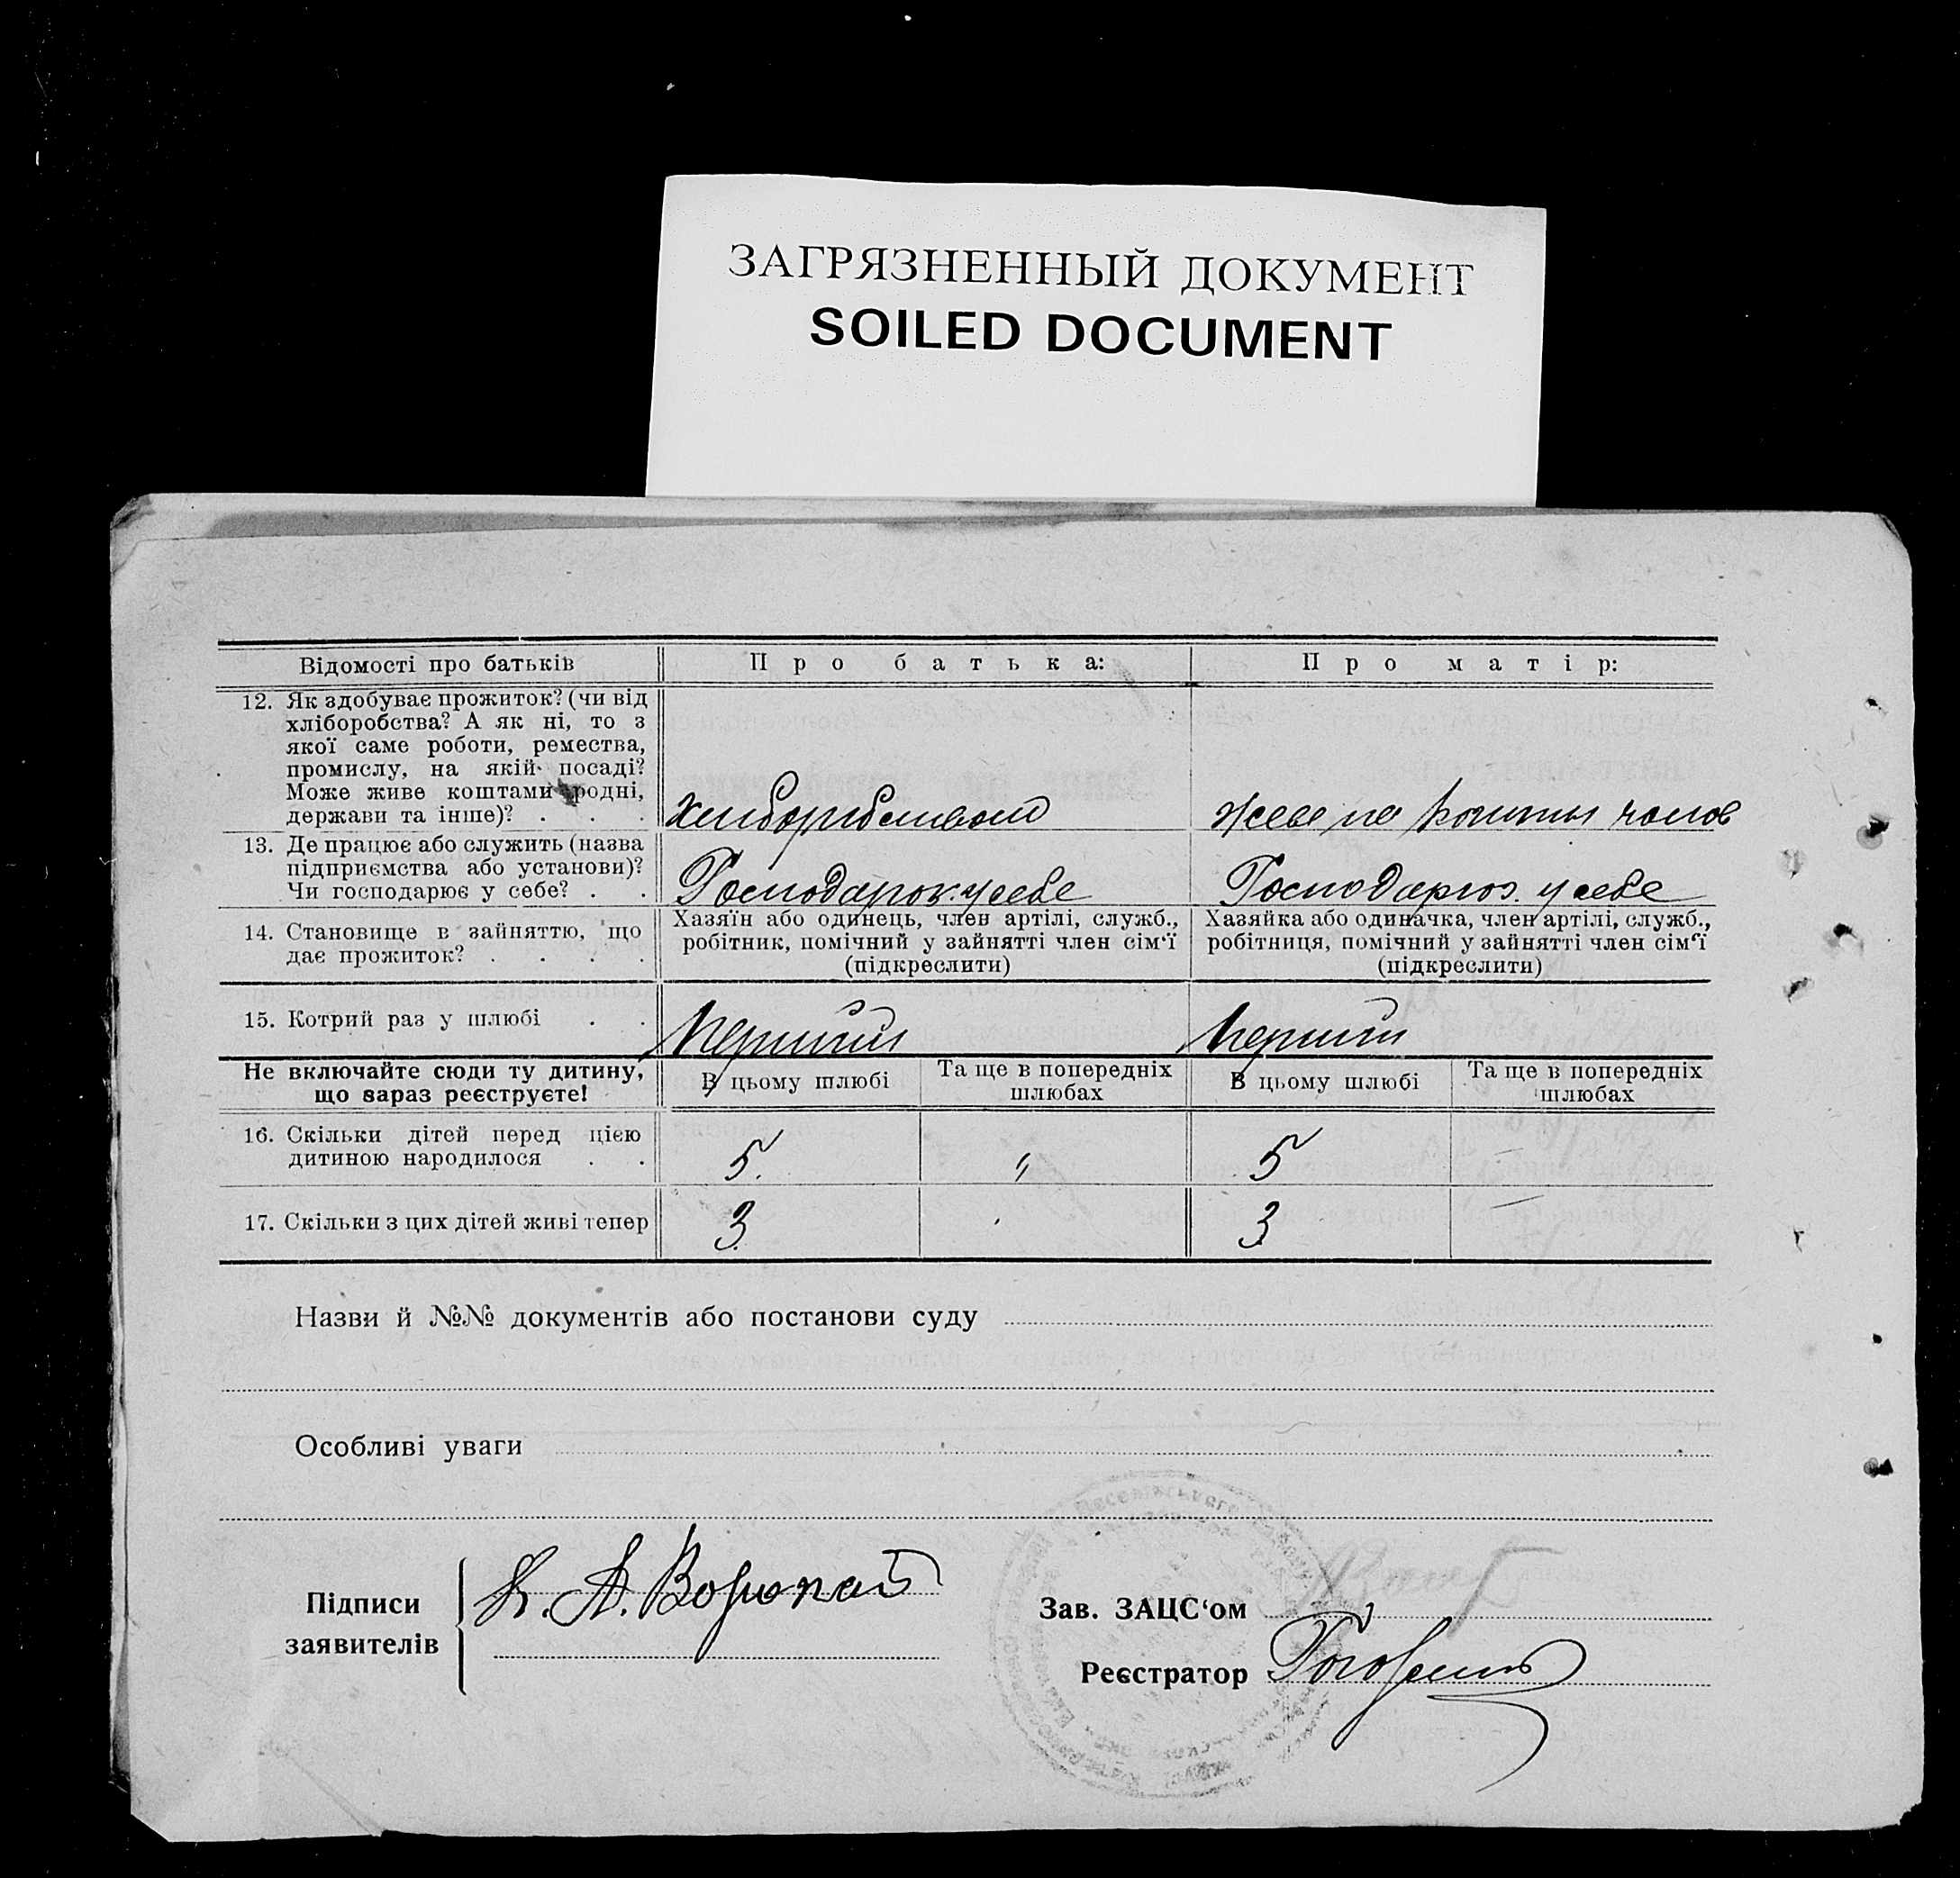 ЗАГРЯЗНЕННЫЙ ДОКУМЕНТ
SOILED DOCUMENT
Відомості про батьків
Про батька:
Про матір:
12. Як здобуває прожиток? (чи від
хліборобства? А як ні, то з
якої саме роботи, ремества,
промислу, на якій посаді?
Може живе коштами родні,
держави та інше)? . . .
Живе на кошты чолов
13. Де працює або служить (назва
підприємства або установи)?
Чи господарює у себе? . .
Господарює. у себе
Господарює. у себе
14. Становище в зайняттю, що
дає прожиток? . . . .
Хазяїн або одинець, член артілі, служб.,
робітник, помічний у зайнятті член сім'ї
(підкреслити)
Хазяйка або одиначка, член артілі, служб.,
робітниця, помічний у зайнятті член сім'ї
(підкреслити)
15. Котрий раз у шлюбі . .
Перший
Перший
Не включайте сюди ту дитину,
що зараз реєструєте!
В цьому шлюбі
Та ще в попередніх
шлюбах
В цьому шлюбі
Та ще в попередніх
шлюбах
16. Скільки дітей перед цією
дитиною народилося . .
5.
"
5
—
17. Скільки з цих дітей живі тепер
3
3
—
Назви й №№ документів або постанови суду
Особливі уваги
Підписи
заявителів
К. А. Ворюпай
Зав. ЗАЦС'ом
Реєстратор